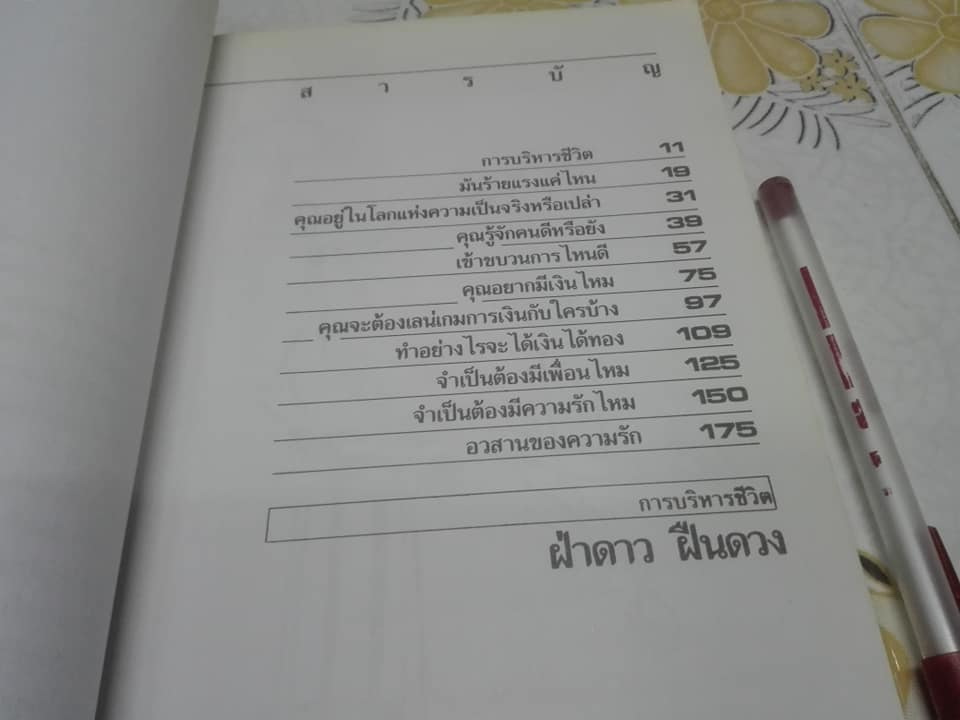 สารบัญ
การบริหารชีวิต 11
มันร้ายแรงแค่ไหน 19
คุณอยู่ในโลกแห่งความเป็นจริงหรือเปล่า 31
คุณรู้จักคนดีหรือยัง 39
เข้าขบวนการไหนดี 57
คุณอยากมีเงินไหม 75
คุณจะต้องเล่นเกมการเงินกับใครบ้าง 97
ทำอย่างไรจะได้เงินได้ทอง 109
จำเป็นต้องมีเพื่อนไหม 125
จำเป็นต้องมีความรักไหม 150
อวสานของความรัก 175
การบริหารชีวิต
ฝ่าดาว ฝืนดวง